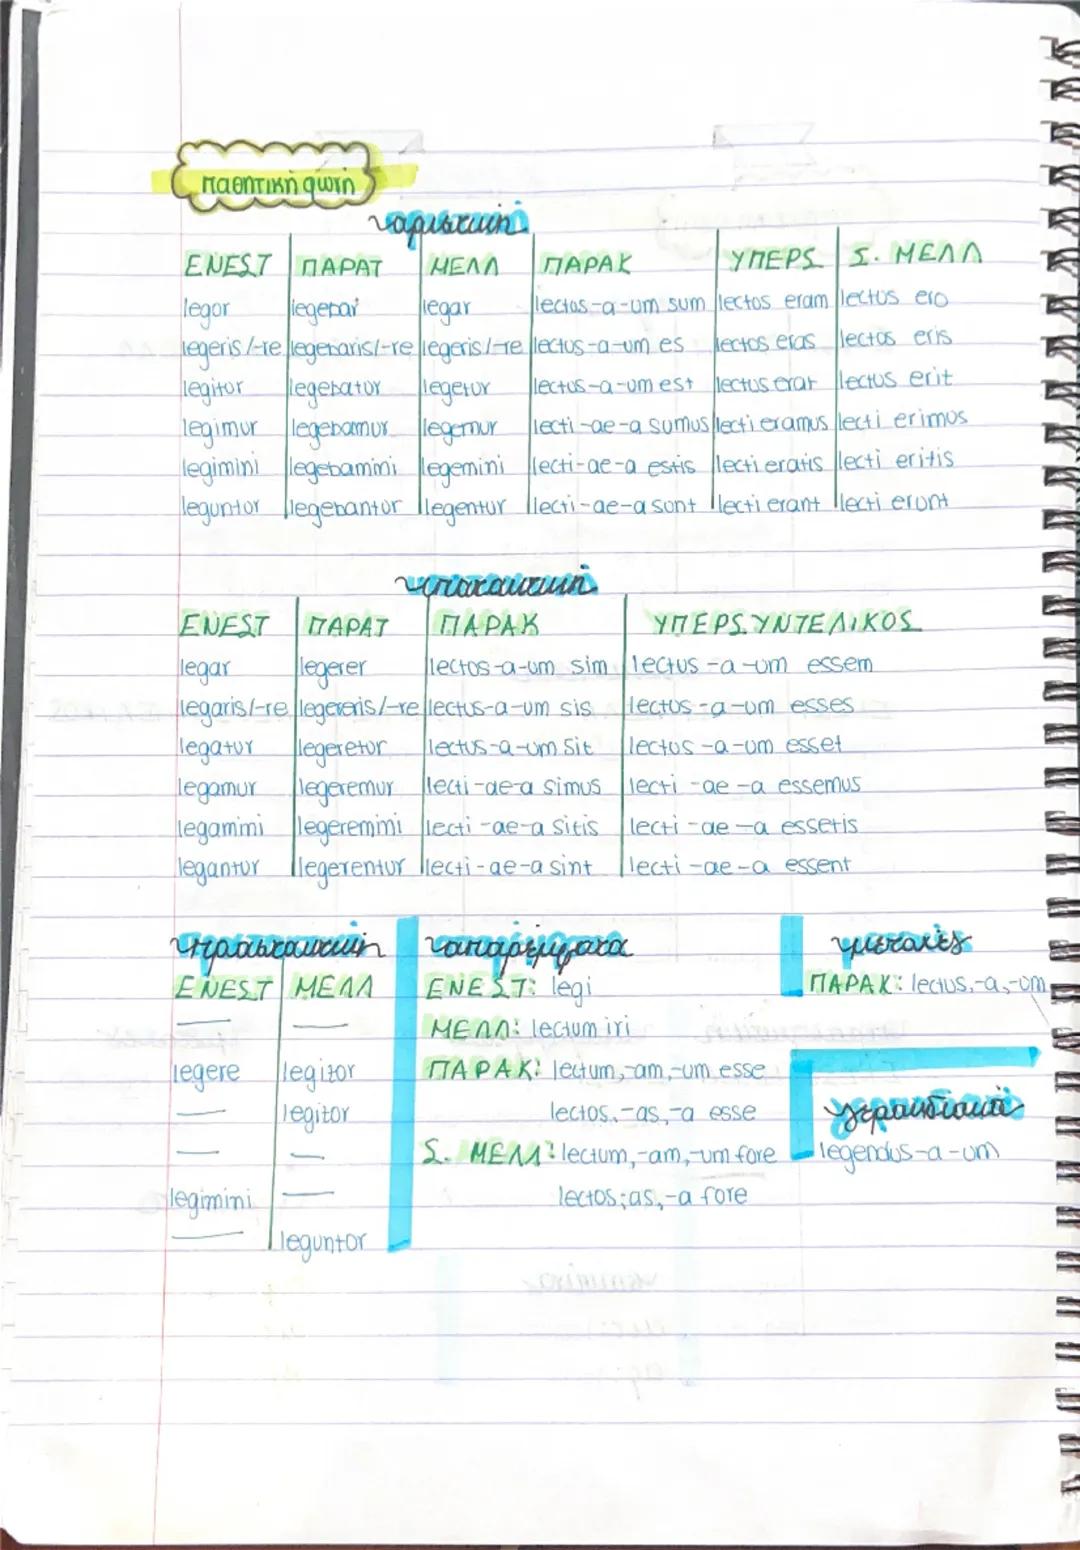 παθητική φωνή
οριστική
ΕΝΕΣΤ ΠΑΡΑΤ ΜΕΛΛ ΠΑΡΑΚ ΥΠΕΡΣ Σ. ΜΕΛΛ
legor legebar legar lectus-a-um sum lectus eram lectus ero
legeris/-re legebaris/-re legeris/-re lectus-a-um es lectus eras lectus eris
legitur legebatur legetur lectus-a-um est lectus erat lectus erit
legimur legebamur legemur lecti-ae-a sumus lecti eramus lecti erimus
legimini legebamini legemini lecti-ae-a estis lecti eratis lecti eritis
leguntur legebantur legentur lecti-ae-a sunt lecti erant lecti erunt
υποτακτική
ΕΝΕΣΤ ΠΑΡΑΤ ΠΑΡΑΚ ΥΠΕΡΣΥΝΤΕΛΙΚΟΣ
legar legerer lectus-a-um sim lectus-a-um essem
legaris/-re legereris/-re lectus-a-um sis lectus-a-um esses
legatur legeretur lectus-a-um sit lectus-a-um esset
legamur legeremur lecti-ae-a simus lecti-ae-a essemus
legamini legeremini lecti-ae-a sitis lecti-ae-a essetis
legantur legerentur lecti-ae-a sint lecti-ae-a essent
προστακτική απαρέμφατα μετοχές
ΕΝΕΣΤ ΜΕΛΛ ΕΝΕΣΤ: legi ΠΑΡΑΚ: lectus,-a,-um
— — ΜΕΛΛ: lectum iri
legere legitor ΠΑΡΑΚ: lectum,-am,-um esse
— legitor lectos,-as,-a esse γερουνδιακό
— — Σ. ΜΕΛΛ: lectum,-am,-um fore legendus-a-um
legimini — lectos,as,-a fore
— leguntor